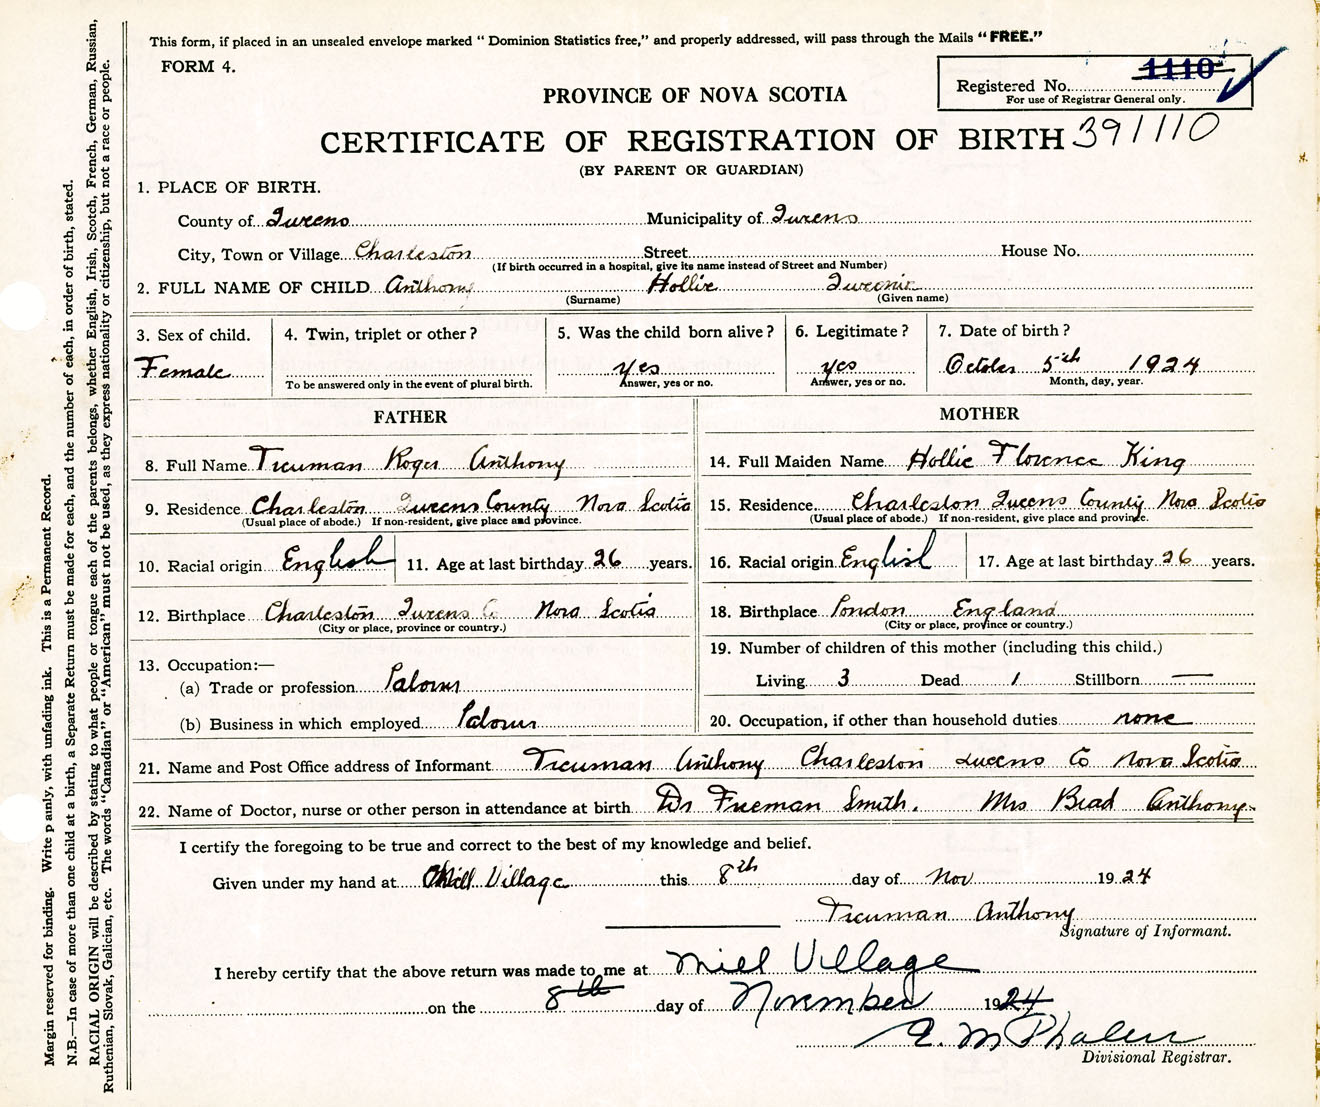 This form, if placed in an unsealed envelope marked " Dominion Statistics free," and properly addressed, will pass through the Mails "FREE."
FORM 4.
1110
Registered No.
For use of Registrar General only.
PROVINCE OF NOVA SCOTIA
CERTIFICATE OF REGISTRATION OF BIRTH 391110
(BY PARENT OR GUARDIAN)
1. PLACE OF BIRTH.
County of Queens Municipality of Queens
City, Town or Village Charleston Street House No.
(If birth occurred in a hospital, give its name instead of Street and Number)
2. FULL NAME OF CHILD Anthony Hollie
(Surname) (Given name)
3. Sex of child. 4. Twin, triplet or other? 5. Was the child born alive? 6. Legitimate? 7. Date of birth?
Female yes yes October 5th 1924
To be answered only in the event of plural birth. Answer, yes or no. Answer, yes or no. Month, day, year.
FATHER MOTHER
8. Full Name Truman Roger Anthony 14. Full Maiden Name Hollie Florence King
9. Residence Charleston Queens County Nova Scotia 15. Residence Charleston Queens County Nova Scotia
(Usual place of abode.) If non-resident, give place and province. (Usual place of abode.) If non-resident, give place and province.
10. Racial origin English 11. Age at last birthday 26 years. 16. Racial origin English 17. Age at last birthday 26 years.
12. Birthplace Charleston Queens Co Nova Scotia 18. Birthplace London England
(City or place, province or country.) (City or place, province or country.)
13. Occupation:— 19. Number of children of this mother (including this child.)
(a) Trade or profession Living 3 Dead 1 Stillborn —
(b) Business in which employed 20. Occupation, if other than household duties none
21. Name and Post Office address of Informant Truman Anthony Charleston Queens Co Nova Scotia
22. Name of Doctor, nurse or other person in attendance at birth Dr Freeman Smith. Mrs Brad Anthony
I certify the foregoing to be true and correct to the best of my knowledge and belief.
Given under my hand at Mill Village this 8th day of Nov 1924
Truman Anthony
Signature of Informant.
I hereby certify that the above return was made to me at Mill Village
on the 8th day of November 1924
E. M Phalen
Divisional Registrar.
Margin reserved for binding. Write p ainly, with unfading ink. This is a Permanent Record.
N.B.—In case of more than one child at a birth, a Separate Return must be made for each, and the number of each, in order of birth, stated.
RACIAL ORIGIN will be described by stating to what people or tongue each of the parents belongs, whether English, Irish, Scotch, French, German, Russian,
Ruthenian, Slovak, Galician, etc. The words "Canadian" or "American" must not be used, as they express nationality or citizenship, but not a race or people.